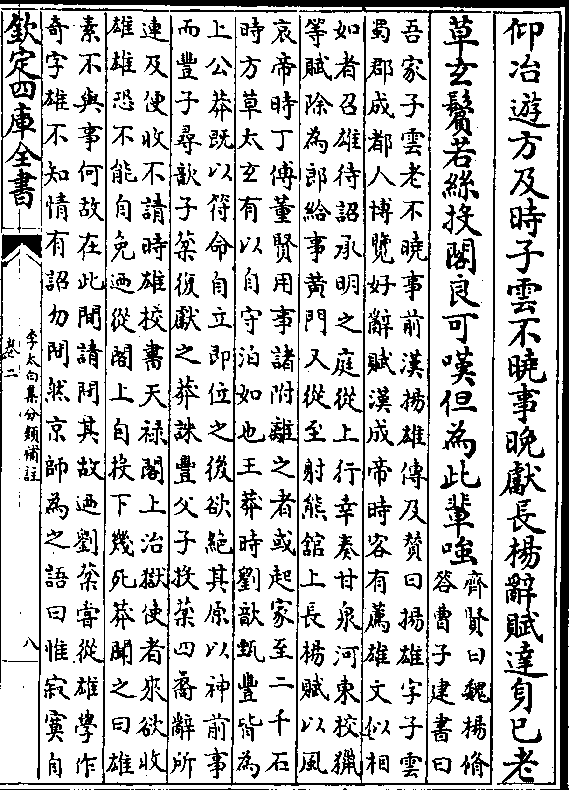 仰冶遊方及時子雲不曉事晚獻長楊辭賦達身已老
草玄鬢若絲投閣良可嘆但為此輩嗤
齊賢曰魏楊脩
答曹子建書曰
吾家子雲老不曉事前漢揚雄傳及贊曰揚雄字子雲
蜀郡成都人博覽好辭賦漢成帝時客有薦雄文似相
如者召雄待詔承明之庭從上行幸奏甘泉河東校獵
等賦除為郎給事黃門又從至射熊館上長楊賦以風
哀帝時丁傅董賢用事諸附離之者或起家至二千石
時方草太玄有以自守泊如也王莽時劉歆甄豐皆為
上公莽既以符命自立即位之後欲絕其原以神前事
而豐子尋歆子棻復獻之莽誅豐父子投棻四裔辭所
連及便收不請時雄校書天祿閣上治獄使者來欲收
雄雄恐不能自免迺從閣上自投下幾死莽聞之曰雄
素不與事何故在此間請問其故迺劉棻嘗從雄學作
奇字雄不知情有詔勿問然京師為之語曰惟寂寞自
欽定四庫全書
李太白集分類補註
卷二
八